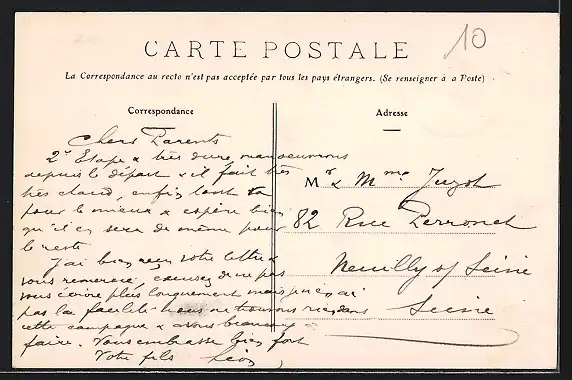 CARTE POSTALE
10
La Correspondance au recto n'est pas acceptée par tous les pays étrangers. (Se renseigner à a Poste)
Correspondance
Chers Parents
2e Etape & très dure, manoeuvrons
depuis le départ & il fait très
très chaud, enfin tout va
pour le mieux & espère bien
qu'il en sera de même pour
le reste
J'ai bien reçu votre lettre &
vous remercie, excusez de ne pas
vous écrire plus longuement mais je n'ai
pas la facilité nous ne trouvons rien dans
cette campagne & avons beaucoup
faire. Vous embrasse bien fort
Votre fils Léon
Adresse
Mr & Mme Juzot
82 Rue Perronet
Neuilly s/ Seine
Seine